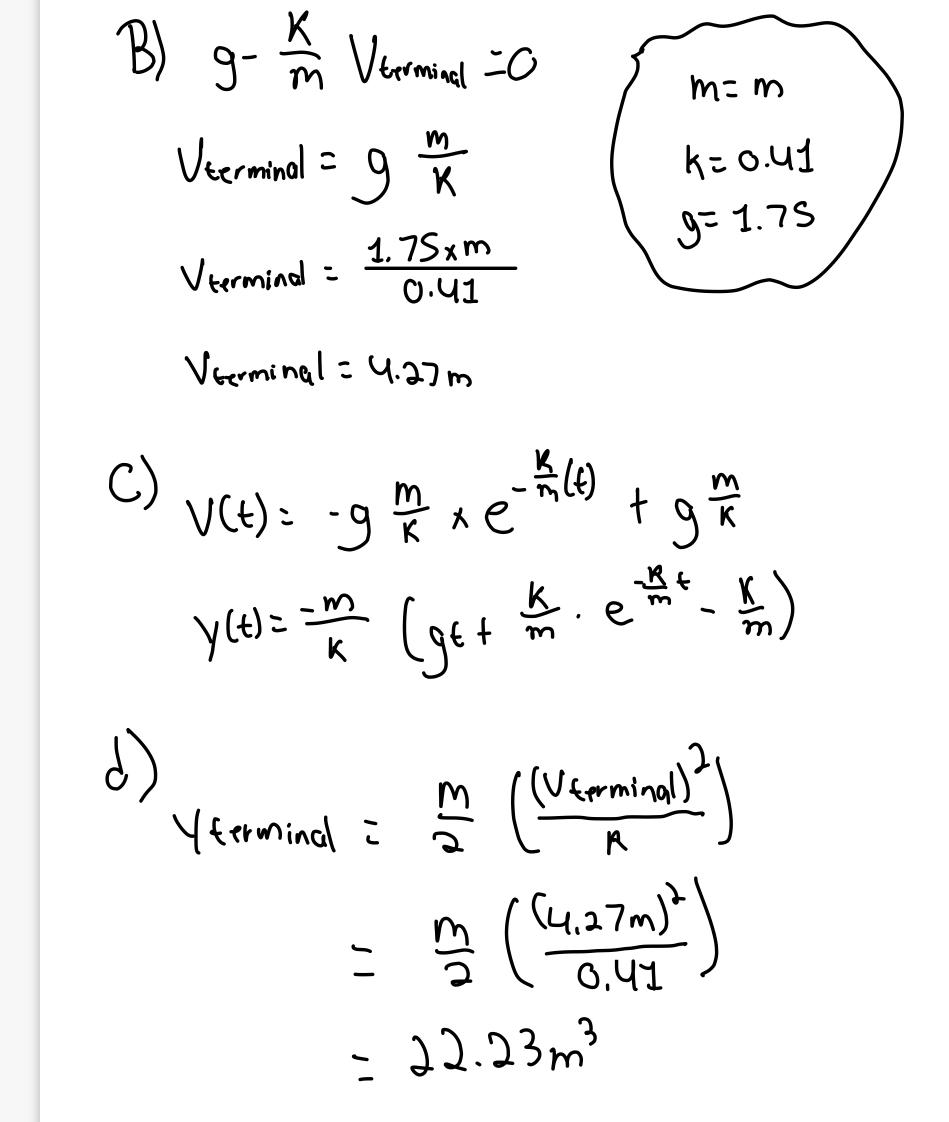 B) g - K/m Vterminal = 0
m = m
Vterminal = g m/K
k = 0.41
g = 1.75
Vterminal = 1.75 x m / 0.41
Vterminal = 4.27m
C) V(t) = -g m/K x e^(-K/m (t)) + g m/K
y(t) = -m/k (gt + k/m · e^(-K/m t) - K/m)
d) Yterminal = m/2 ((Vterminal)^2 / R)
= m/2 ((4.27m)^2 / 0.41)
= 22.23m^3